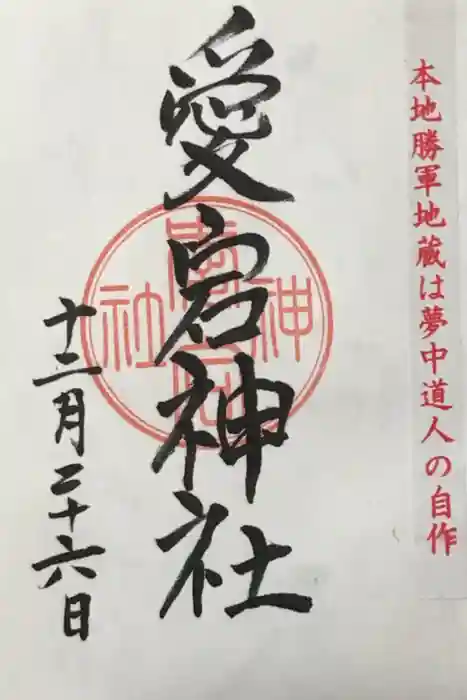 本地勝軍地蔵は夢中道人の自作
愛宕神社
愛宕神社
十二月二十六日